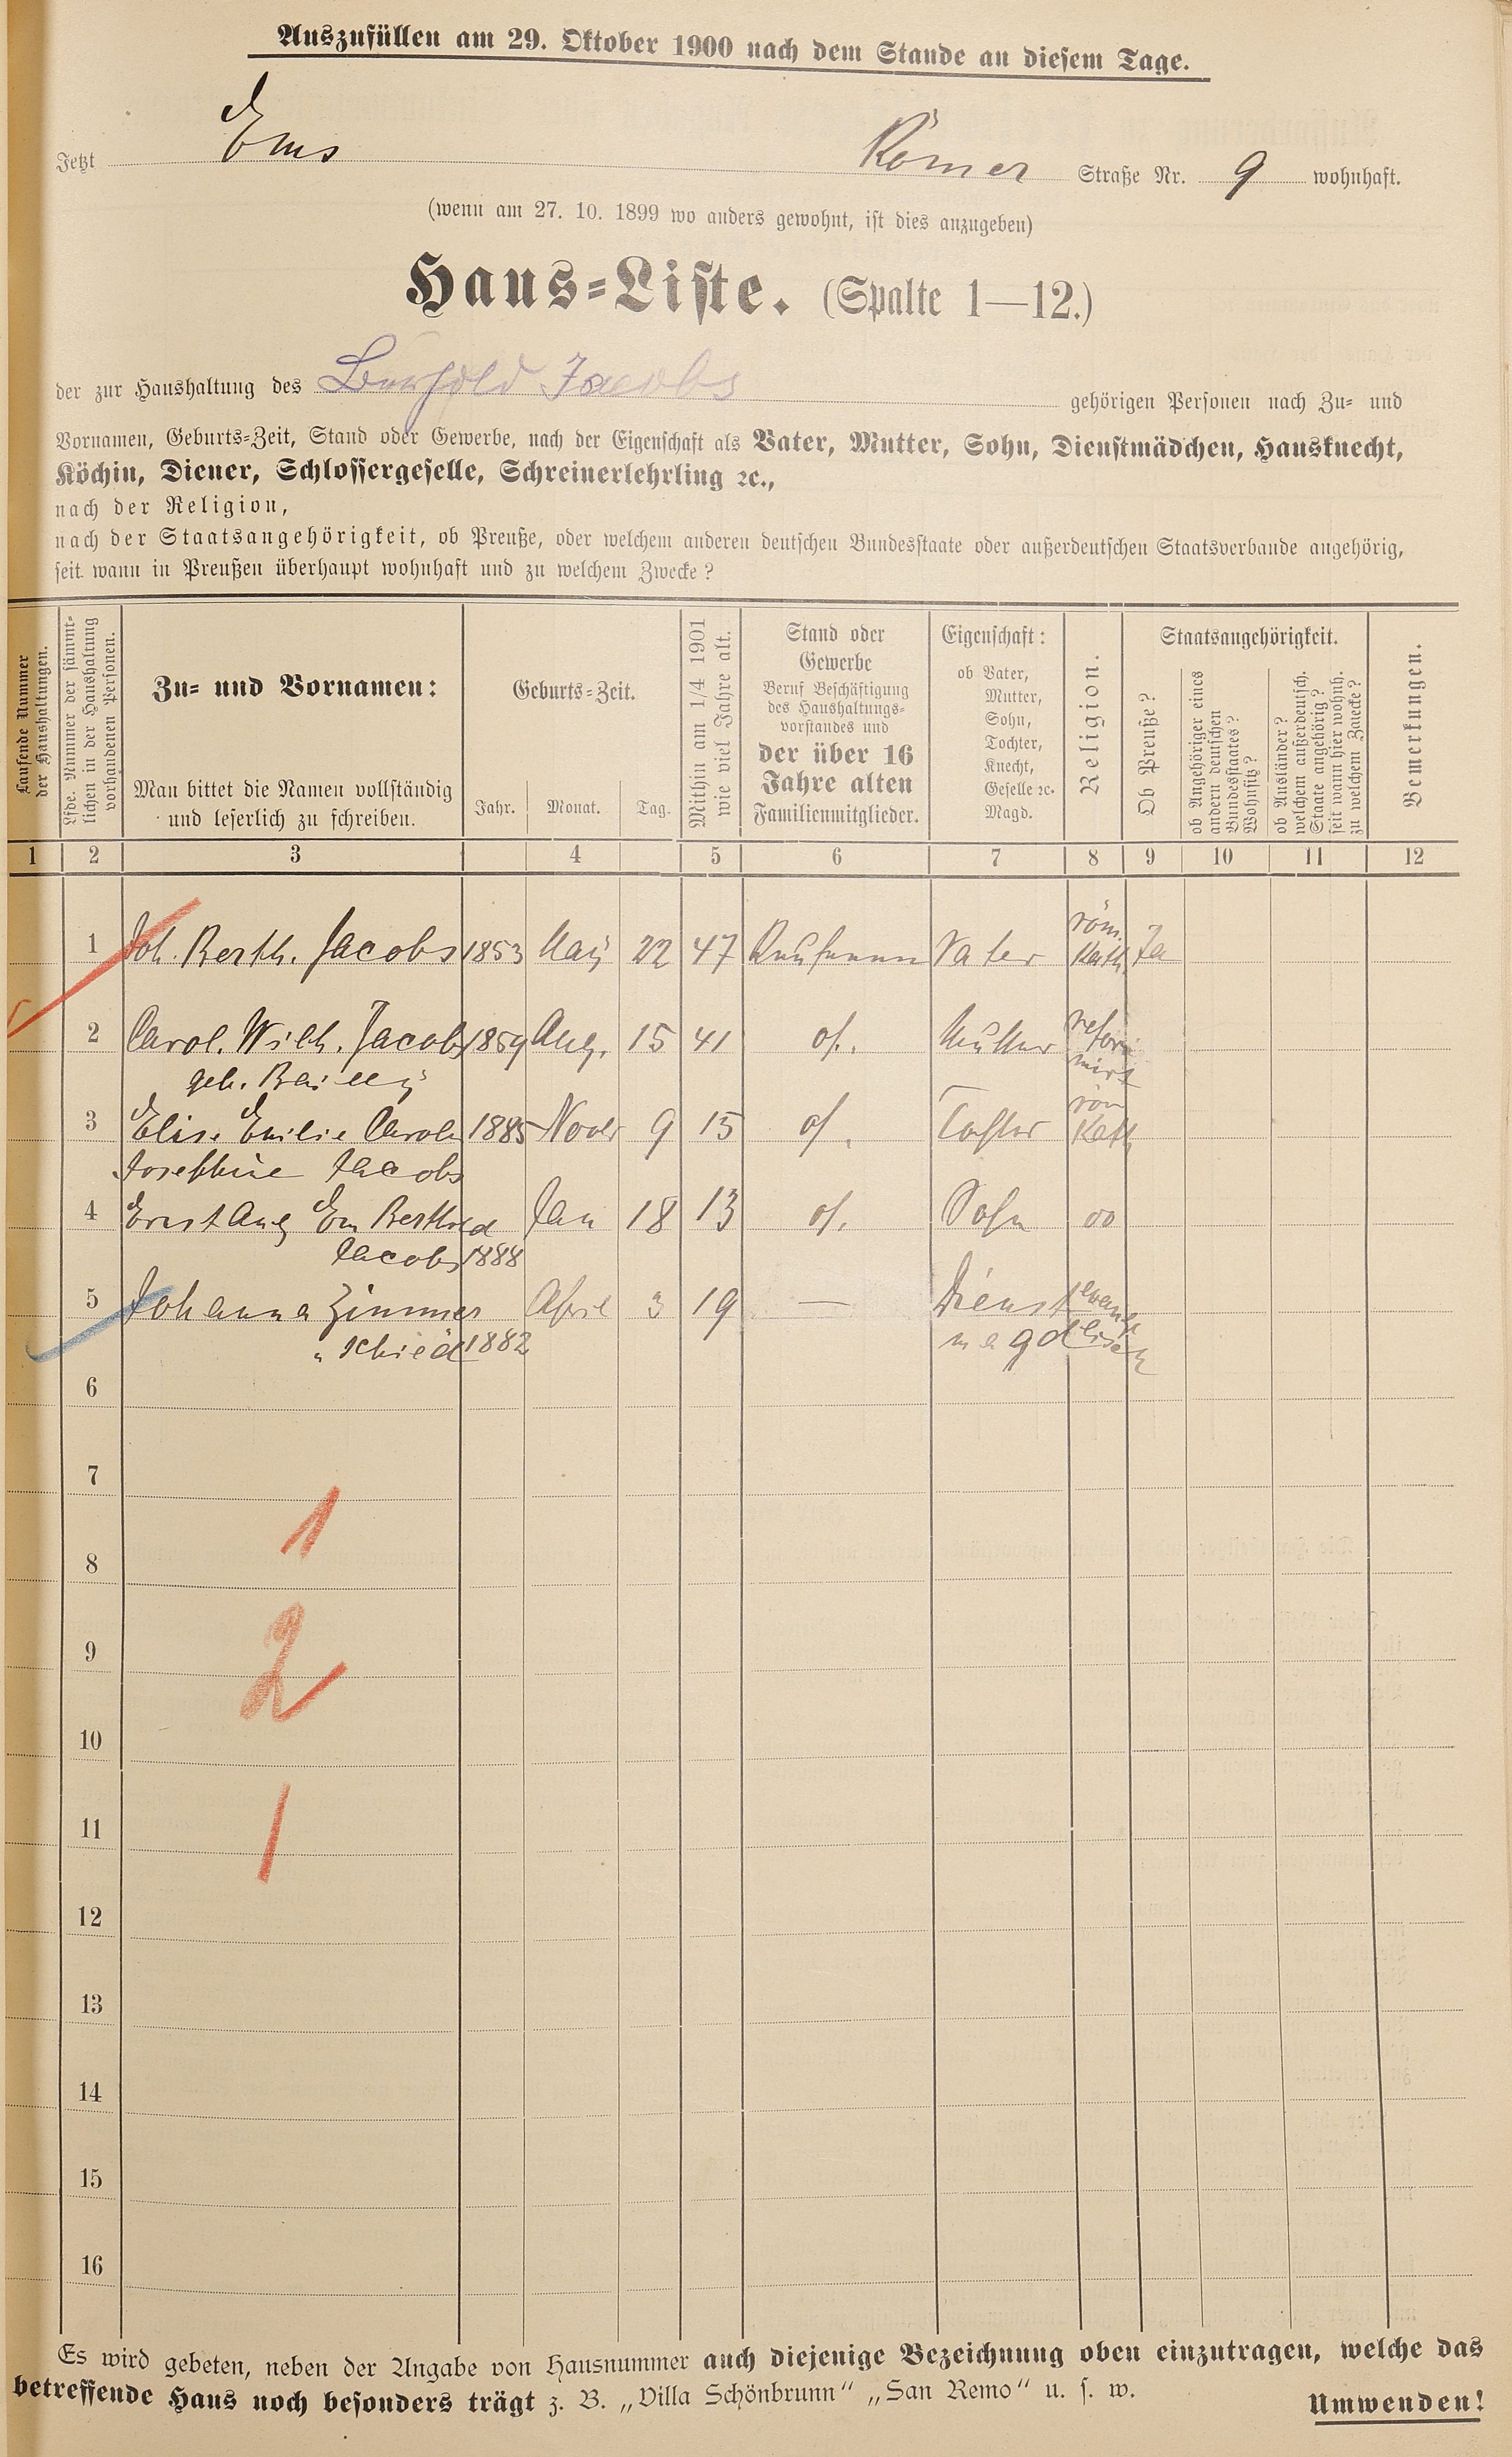 Auszufüllen am 29. Oktober 1900 nach dem Stande an diesem Tage.
Jetzt Ems Römer Straße Nr. 9 wohnhaft.
(wenn am 27. 10. 1899 wo anders gewohnt, ist dies anzugeben)
Haus-Liste. (Spalte 1—12.)
der zur Haushaltung des Jacobs gehörigen Personen nach Zu- und
Vornamen, Geburts-Zeit, Stand oder Gewerbe, nach der Eigenschaft als Vater, Mutter, Sohn, Dienstmädchen, Hausknecht,
Köchin, Diener, Schlossergeselle, Schreinerlehrling ꝛc.,
nach der Religion,
nach der Staatsangehörigkeit, ob Preuße, oder welchem anderen deutschen Bundesstaate oder außerdeutschen Staatsverbande angehörig,
seit wann in Preußen überhaupt wohnhaft und zu welchem Zwecke?
Laufende Nummer
der Haushaltungen.
Lfde. Nummer der sämmt-
lichen in der Haushaltung
vorhandenen Personen.
Zu- und Vornamen:
Man bittet die Namen vollständig
und leserlich zu schreiben.
Geburts-Zeit.
Jahr. Monat. Tag.
Mithin am 1/4 1901
wie viel Jahre alt.
Stand oder
Gewerbe
Beruf Beschäftigung
des Haushaltungs-
vorstandes und
der über 16
Jahre alten
Familienmitglieder.
Eigenschaft:
ob Vater,
Mutter,
Sohn,
Tochter,
Knecht,
Geselle ꝛc.
Magd.
Religion.
Staatsangehörigkeit.
Ob Preuße?
ob Angehöriger eines
andern deutschen
Bundesstaates?
Wohnsitz?
ob Ausländer?
welchem außerdeutsch.
Staate angehörig?
seit wann hier wohnh.
zu welchem Zwecke?
Bemerkungen.
1 2 3 4 5 6 7 8 9 10 11 12
röm.
1 Joh. Berth. Jacobs 1853 Maij 22 47 Kaufmann Vater Kath. Ja
2 Carol. Wilh. Jacobs 1859 Aug. 15 41 of. Mutter refor
geb. Bailly mirt
röm
3 Elise Emilie Carola 1885 Novbr 9 15 of. Tochter Kath
Josephine Jacobs
4 Ernst Aug Em Berthold Jan 18 13 of. Sohn do
Jacobs 1888
5 Johanna Zimmer April 3 19 — Dienst evange
" schied 1882 magd lisch
6
7
1
8
9
2
10
11
1
12
13
14
15
16
Es wird gebeten, neben der Angabe von Hausnummer auch diejenige Bezeichnung oben einzutragen, welche das
betreffende Haus noch besonders trägt z. B. „Villa Schönbrunn“ „San Remo“ u. s. w.
Umwenden!